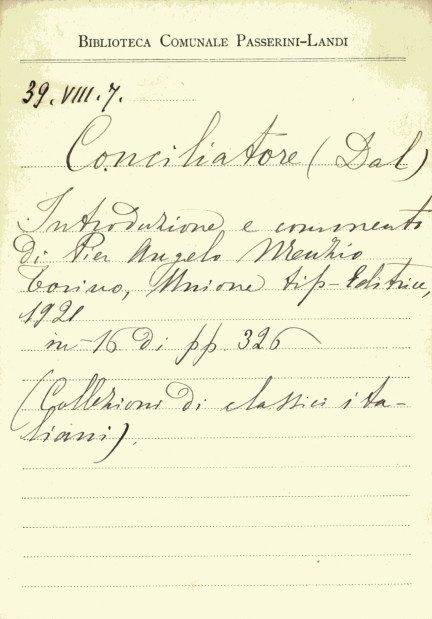 BIBLIOTECA COMUNALE PASSERINI-LANDI
39.VIII.7.
Conciliatore (Dal)
Introduzione e commento
di Pier Angelo Menzio
Torino, Unione tip-Editrice,
1921
in-16 di pp. 326
(Collezioni di classici ita-
liani).